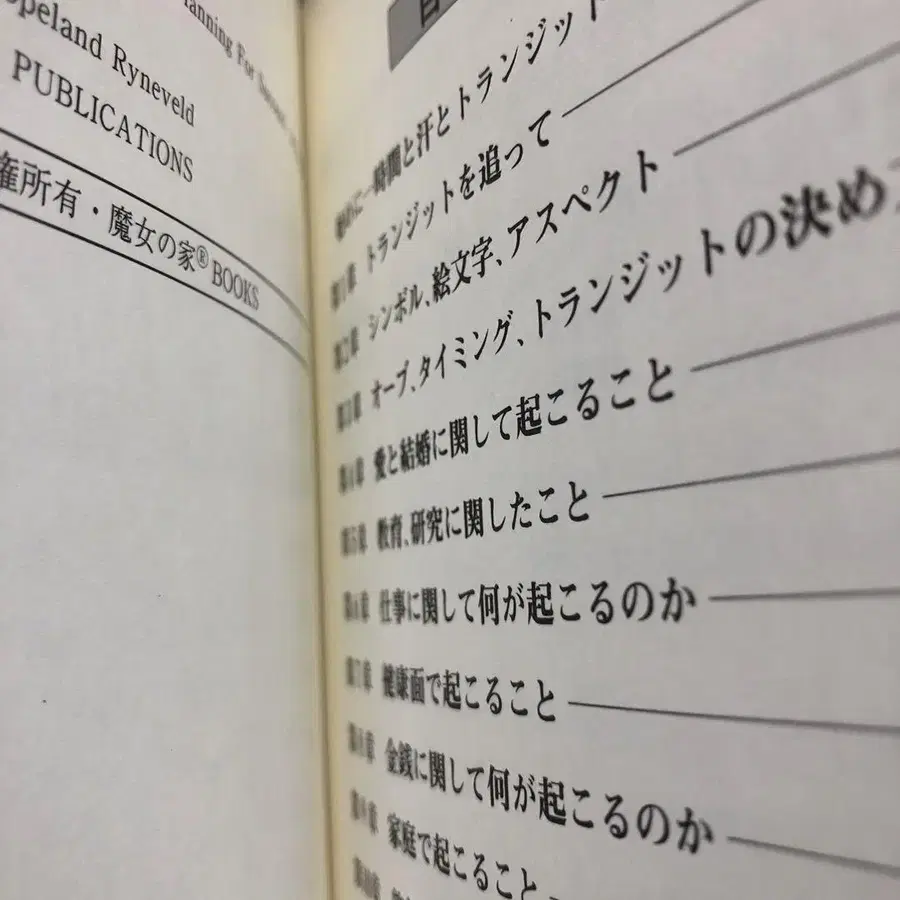 lanning For
opeland Ryneveld
PUBLICATIONS
権所有・魔女の家® BOOKS
目
始めに―時間と汗とトランジット
第1章 トランジットを追って
第2章 シンボル、絵文字、アスペクト
第3章 オーブ、タイミング、トランジットの決め
第4章 愛と結婚に関して起こること
第5章 教育、研究に関したこと
第6章 仕事に関して何が起こるのか
第7章 健康面で起こること
第8章 金銭に関して何が起こるのか
第9章 家庭で起こること
第10章